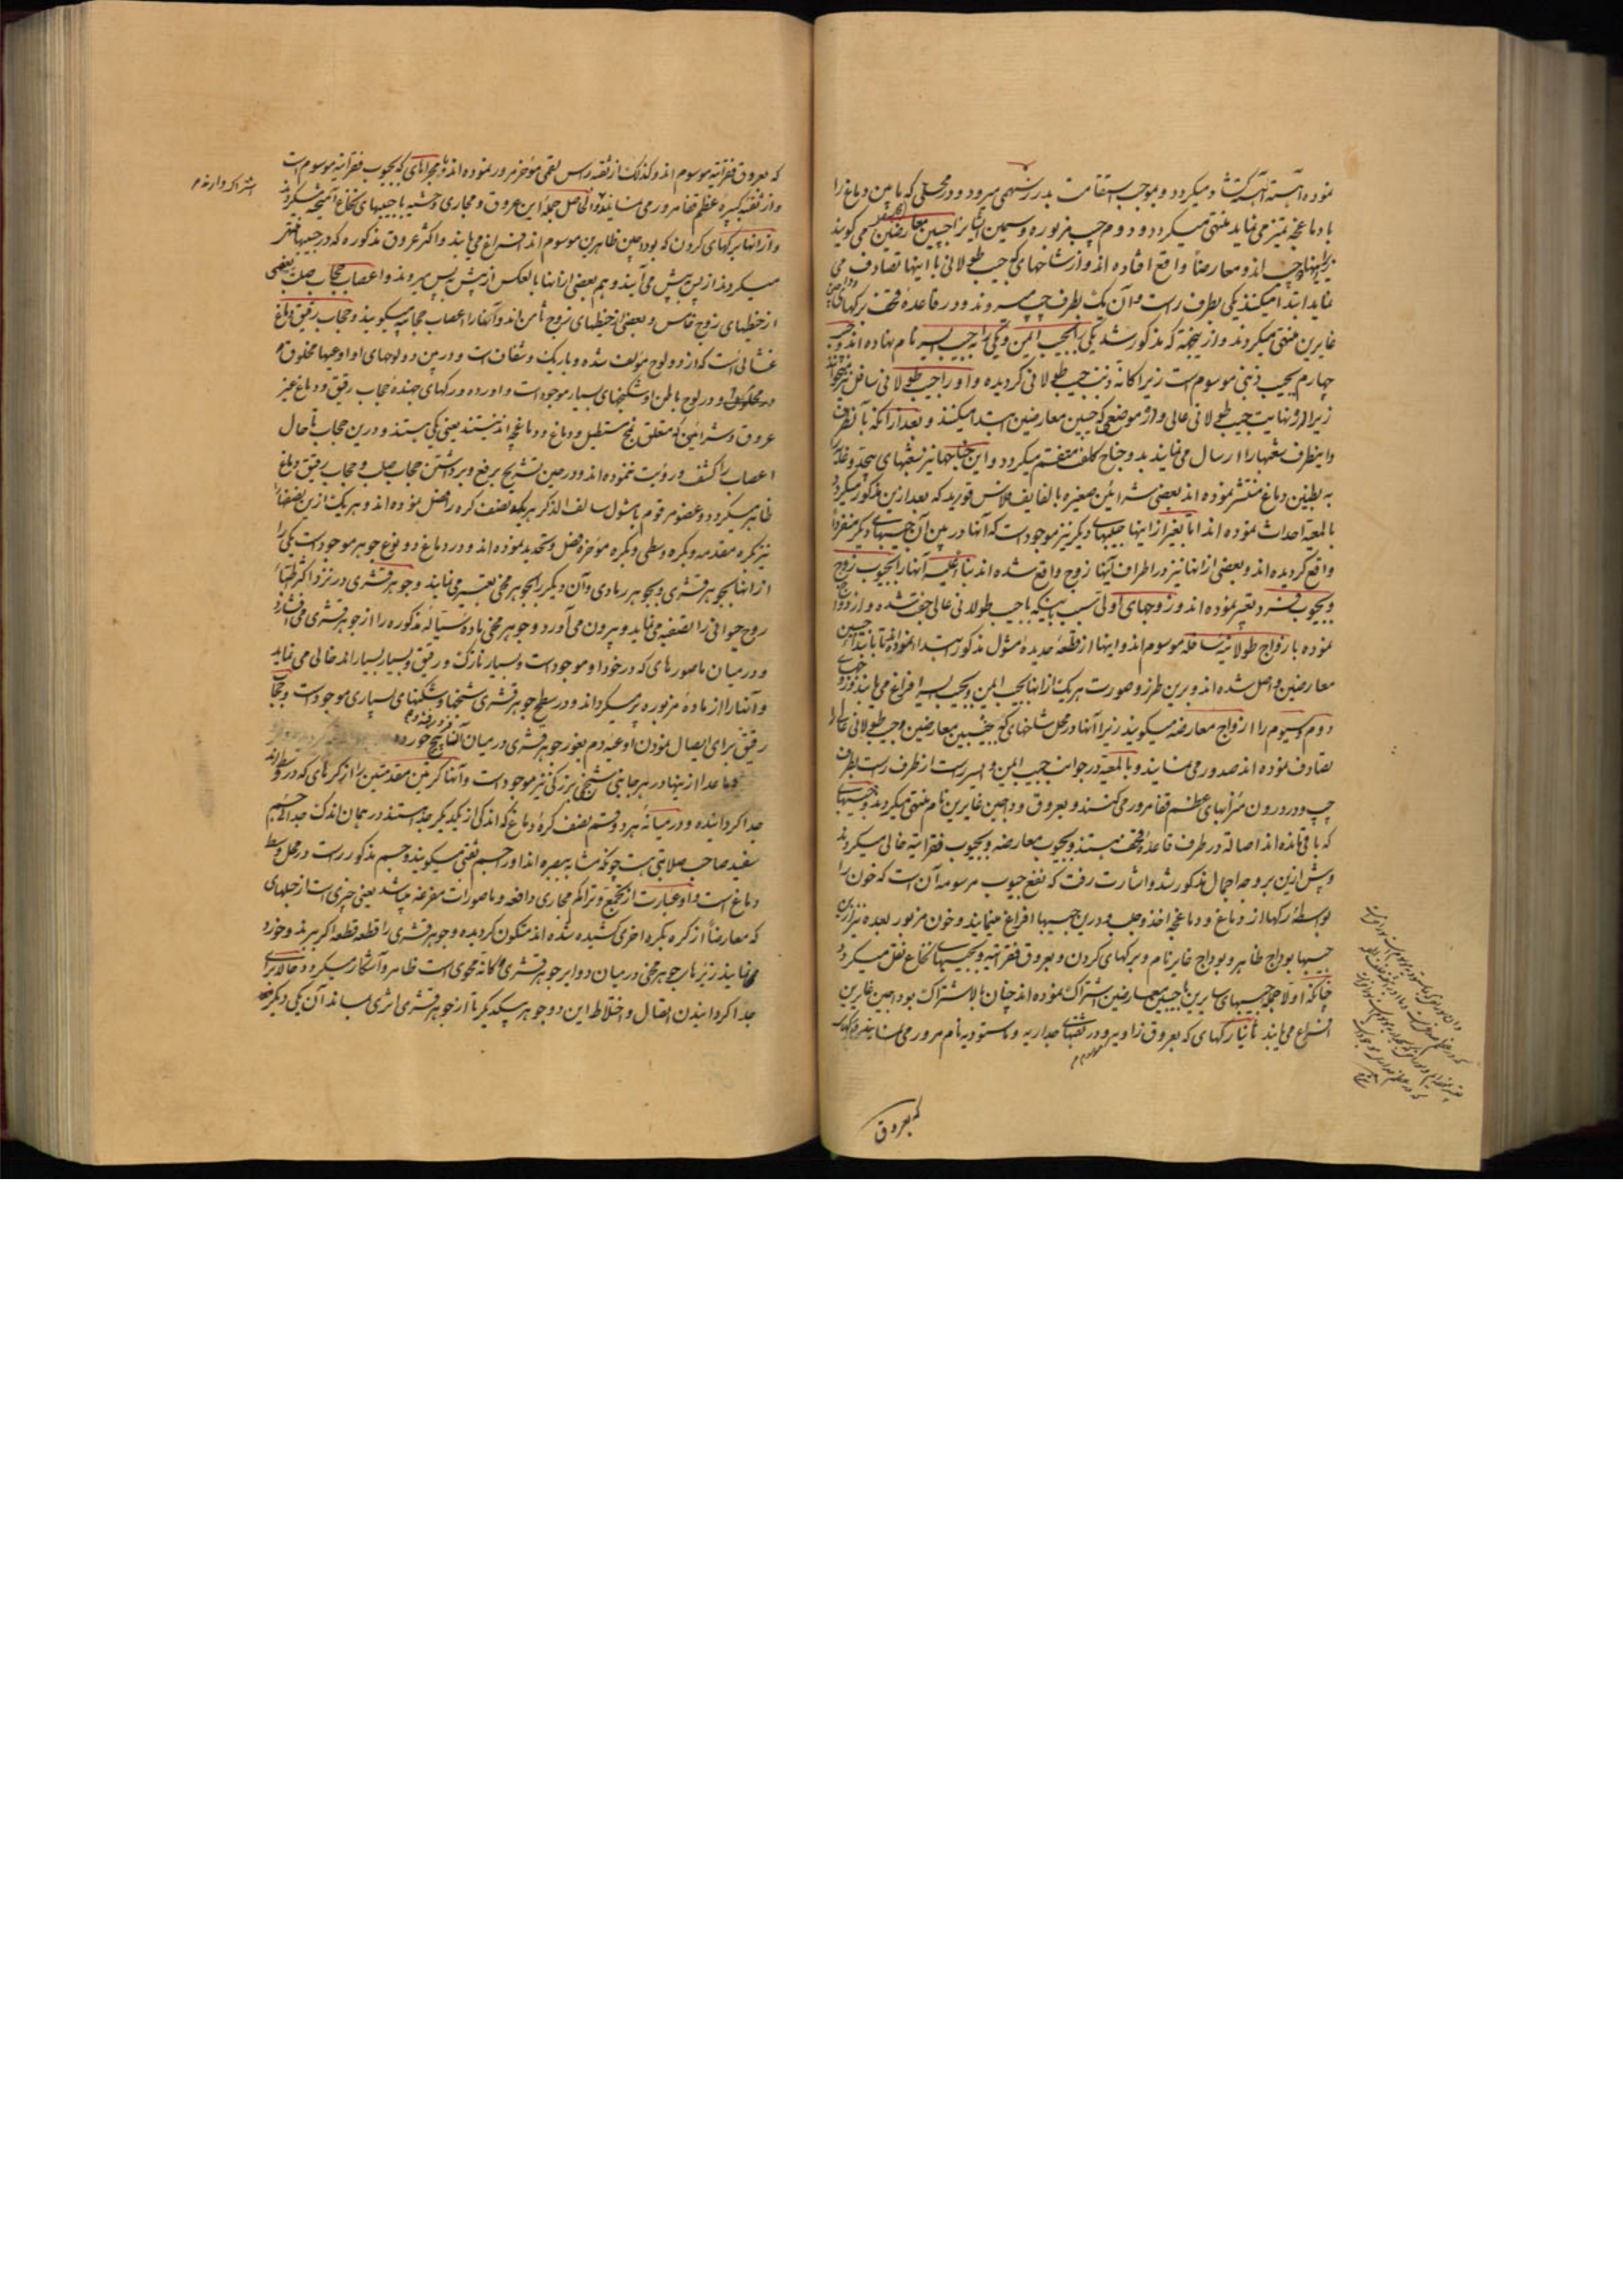 نموده آهسته آهسته کشاد میکردد و بموجب استقامت بدرز سهمی میرود و در محلی که مابین دماغ را
با دماغچه تمیز می نماید منتهی میکردد و دوم جیب مزبوره و سیمین آنها نیز را جیبین معارضین می کویند
زیرا اینها جیب اند و معارضاً واقع افتاده اند و از شاخهای جیب طولانی با اینها تصادف می
نماید ابتدا میکنند یکی بطرف راست و آن یک بطرف چپ میروند و در قاعدهٔ قحف برکهای
غایرین منتهی میکردند و از نیجهته که مذکور شد یکی را بجیب ایمن و یکی را به جیب ایسر نام نهاده اند و جیب
چهارم بجیب ذهنی موسوم است زیرا کانه ذنب جیب طولانی کردیده و او را جیب طولانی سافل نیز میخوانند
زیرا از نهایت جیب طولانی عالی و از موضعی که جیبین معارضین ابتدا میکنند و بعد از آنکه بآنطرف
و اینطرف شعبها را ارسال می نمایند بدو جناح کلف منقسم میکردد و این جناحها نیز شعبهای بیحد و عد
به بطنین دماغ منتشر نموده اند بعضی شرائین صغیره بالفایف قورید که بعد ازین مذکور میکردد
بالمعیة احداث نموده اند اما بغیر از اینها جیبهای دیکر نیز موجود است که آنها در بین آن جیبهای دیکر منفردا
واقع کردیده اند و بعضی از آنها نیز در اطراف آنها زوج واقع شده اند بناءً علیه آنها را بجیوب زوج
و بجیوب فرد تعبیر نموده اند و زوجهای اولی بسبب اینکه با جیب طولانی عالی جفت شده و ازدواج
نموده بازواج طولانیه سافله موسوم اند و اینها از قطعهٔ حدیدهٔ مشول مذکور ابتدا نموده تا بابتداء جیبین
معارضین واصل شده اند و برین طرز و صورت هر یک از اینها بجیب ایمن و بجیب ایسر افراغ می یابند و زوجهای
دوم و سیوم را ازواج معارضه میکویند زیرا آنها در محل شاخهای که جیبین معارضین و جیب طولانی عالی را
تصادف نموده اند صدور می نمایند و بالمعیة در جوانب جیب ایمن و ایسر راست از طرف راست بطرف
چپ و در درون مغزابهای عظم قفا مرور می کنند و بعروق وداجین غایرین نام منتهی میکردند و جیبهای
که باقی مانده اند اصالة در طرف قاعدهٔ قحف هستند و بجیوب معارضه و بجیوب فقراتیه خالی میکردند
و پیش ازین بر وجه اجمال مذکور شد و اشارت رفت که نفع جیوب مرسومه آن است که خون را
بواسطهٔ رکها از دماغ و دماغچه اخذ و جلب و درین جیبها افراغ مینمایند و خون مزبور بعده نیز ازین
جیبها بوداج ظاهر و بوداج غایر نام و برکهای کردن و بعروق فقراتیه و بجیبهای نخاع نقل میکردد
چنانکه اولاً جمله جیبهای سایرین با جیبین معارضین اشتراک نموده اند چنان بالاشتراک بوداجین غایرین
افراغ می یابند ثانیا رکهای که بعروق زاویه و در ثقبهای جداریه و ماستودیه نام مرور می نمایند و رکهای
که بعروق
که بعروق فقراتیه موسوم اند و کذلک از ثقبه رأس لقمی مؤخر مرور نموده اند با مجراهای که بجیوب فقراتیه موسوم است
و از ثقبهٔ کبیرهٔ عظم قفا مرور می نمایند والحاصل جملهٔ این عروق و مجاری وحشیه با جیبهای نخاع آمیخته میکردند
و از آنها برکهای کردن که بوداجین ظاهرین موسوم اند افراغ می یابند و اکثر عروق مذکوره که در جیبها منتهی
میکردند از پس به پیش می آیند و هم بعضی از آنها بالعکس از پیش به پس میروند و اعصاب حجاب صلب بعضی
از خیطهای زوج خامس و بعضی از خیطهای زوج ثامن اند و آنها را اعصاب حجابیه میکویند و حجاب رقیق دماغ
غشائی است که از دو لوح مؤلف شده و باریک و شفاف است و در بین دو لوحهای او اوعیها مخلوق
و در لوح باطن او شکنجهای بسیار موجود است و اورده و رکهای جنده حجاب رقیق و دماغ غیر
عروق و شرائین که متعلق نخ مستطیل و دماغ و دماغچه اند نیستند یعنی یکی هستند و درین حجاب تا حال
اعصاب را کشف و رؤیت ننموده اند و در حین تشریح بر رفع و برداشتن حجاب صلب و حجاب رقیق دماغ
ظاهر میکردد و عضو مرقوم با مشول سالف الذکر هر یک بدو نصف کره را فصل نموده اند و هر یک از ین نصفها
نیز بکره مقدمه و بکره وسطی و بکره مؤخره فصل و تحدید نموده اند و در دماغ دو نوع جوهر موجود است یکی را
از آنها بجوهر قشری و بجوهر رمادی و آن دیکر را بجوهر مخی تعبیر می نمایند و جوهر قشری در نزد اکثر اطباء
روح حیوانی را تصفیه می نماید و بیرون می آورد و جوهر مخی ماده سیالهٔ مذکوره را از جوهر قشری می فشارد
و در میان ماصورهای که در خود او موجود است و بسیار نازک و رقیق و بسیار بسیار اند خالی می نماید
و آنها را از مادهٔ مزبوره پر میکرداند و در سطح جوهر قشری شخها و شکنهای بسیاری موجود است و حجاب
رقیق برای ایصال نمودن اوعیه دم بغور جوهر قشری در میان آنها پیچ خورده
و ما عدا از ینها در هر جانبی شخی بزرکی نیز موجود است و آنها کرتین مقدمتین را از کرهای که در وسط اند
جدا کردانیده و در میانهٔ هر دو قسم نصف کرهٔ دماغ که اندکی از یکدیکر جدا هستند در همان اندک جدا جسم
سفید صاحب صلابتی هست چونکه مشابه ببصره اند او را جسم ثفنی میکویند و جسم مذکور راست در محل وسط
دماغ است و او عبارت از تجمع و تراکم مجاری دافعه و ماصورات مفرغه میباشد یعنی چیزی است از جبلهای
که معارضاً از کره بکره اخری کشیده شده اند متکون کردیده و جوهر قشری را قطعه قطعه اکر ببرند و خورد
نمایند زیر بار جوهر مخی در میان دوایر جوهر قشری کانه محوی است ظاهر و آشکار میکردد حالا برای
جدا کردانیدن اتصال و اختلاط این دو جوهر بیکدیکر تا از جوهر قشری اثری نماند آن یکی دیکر
اشتراک دارند